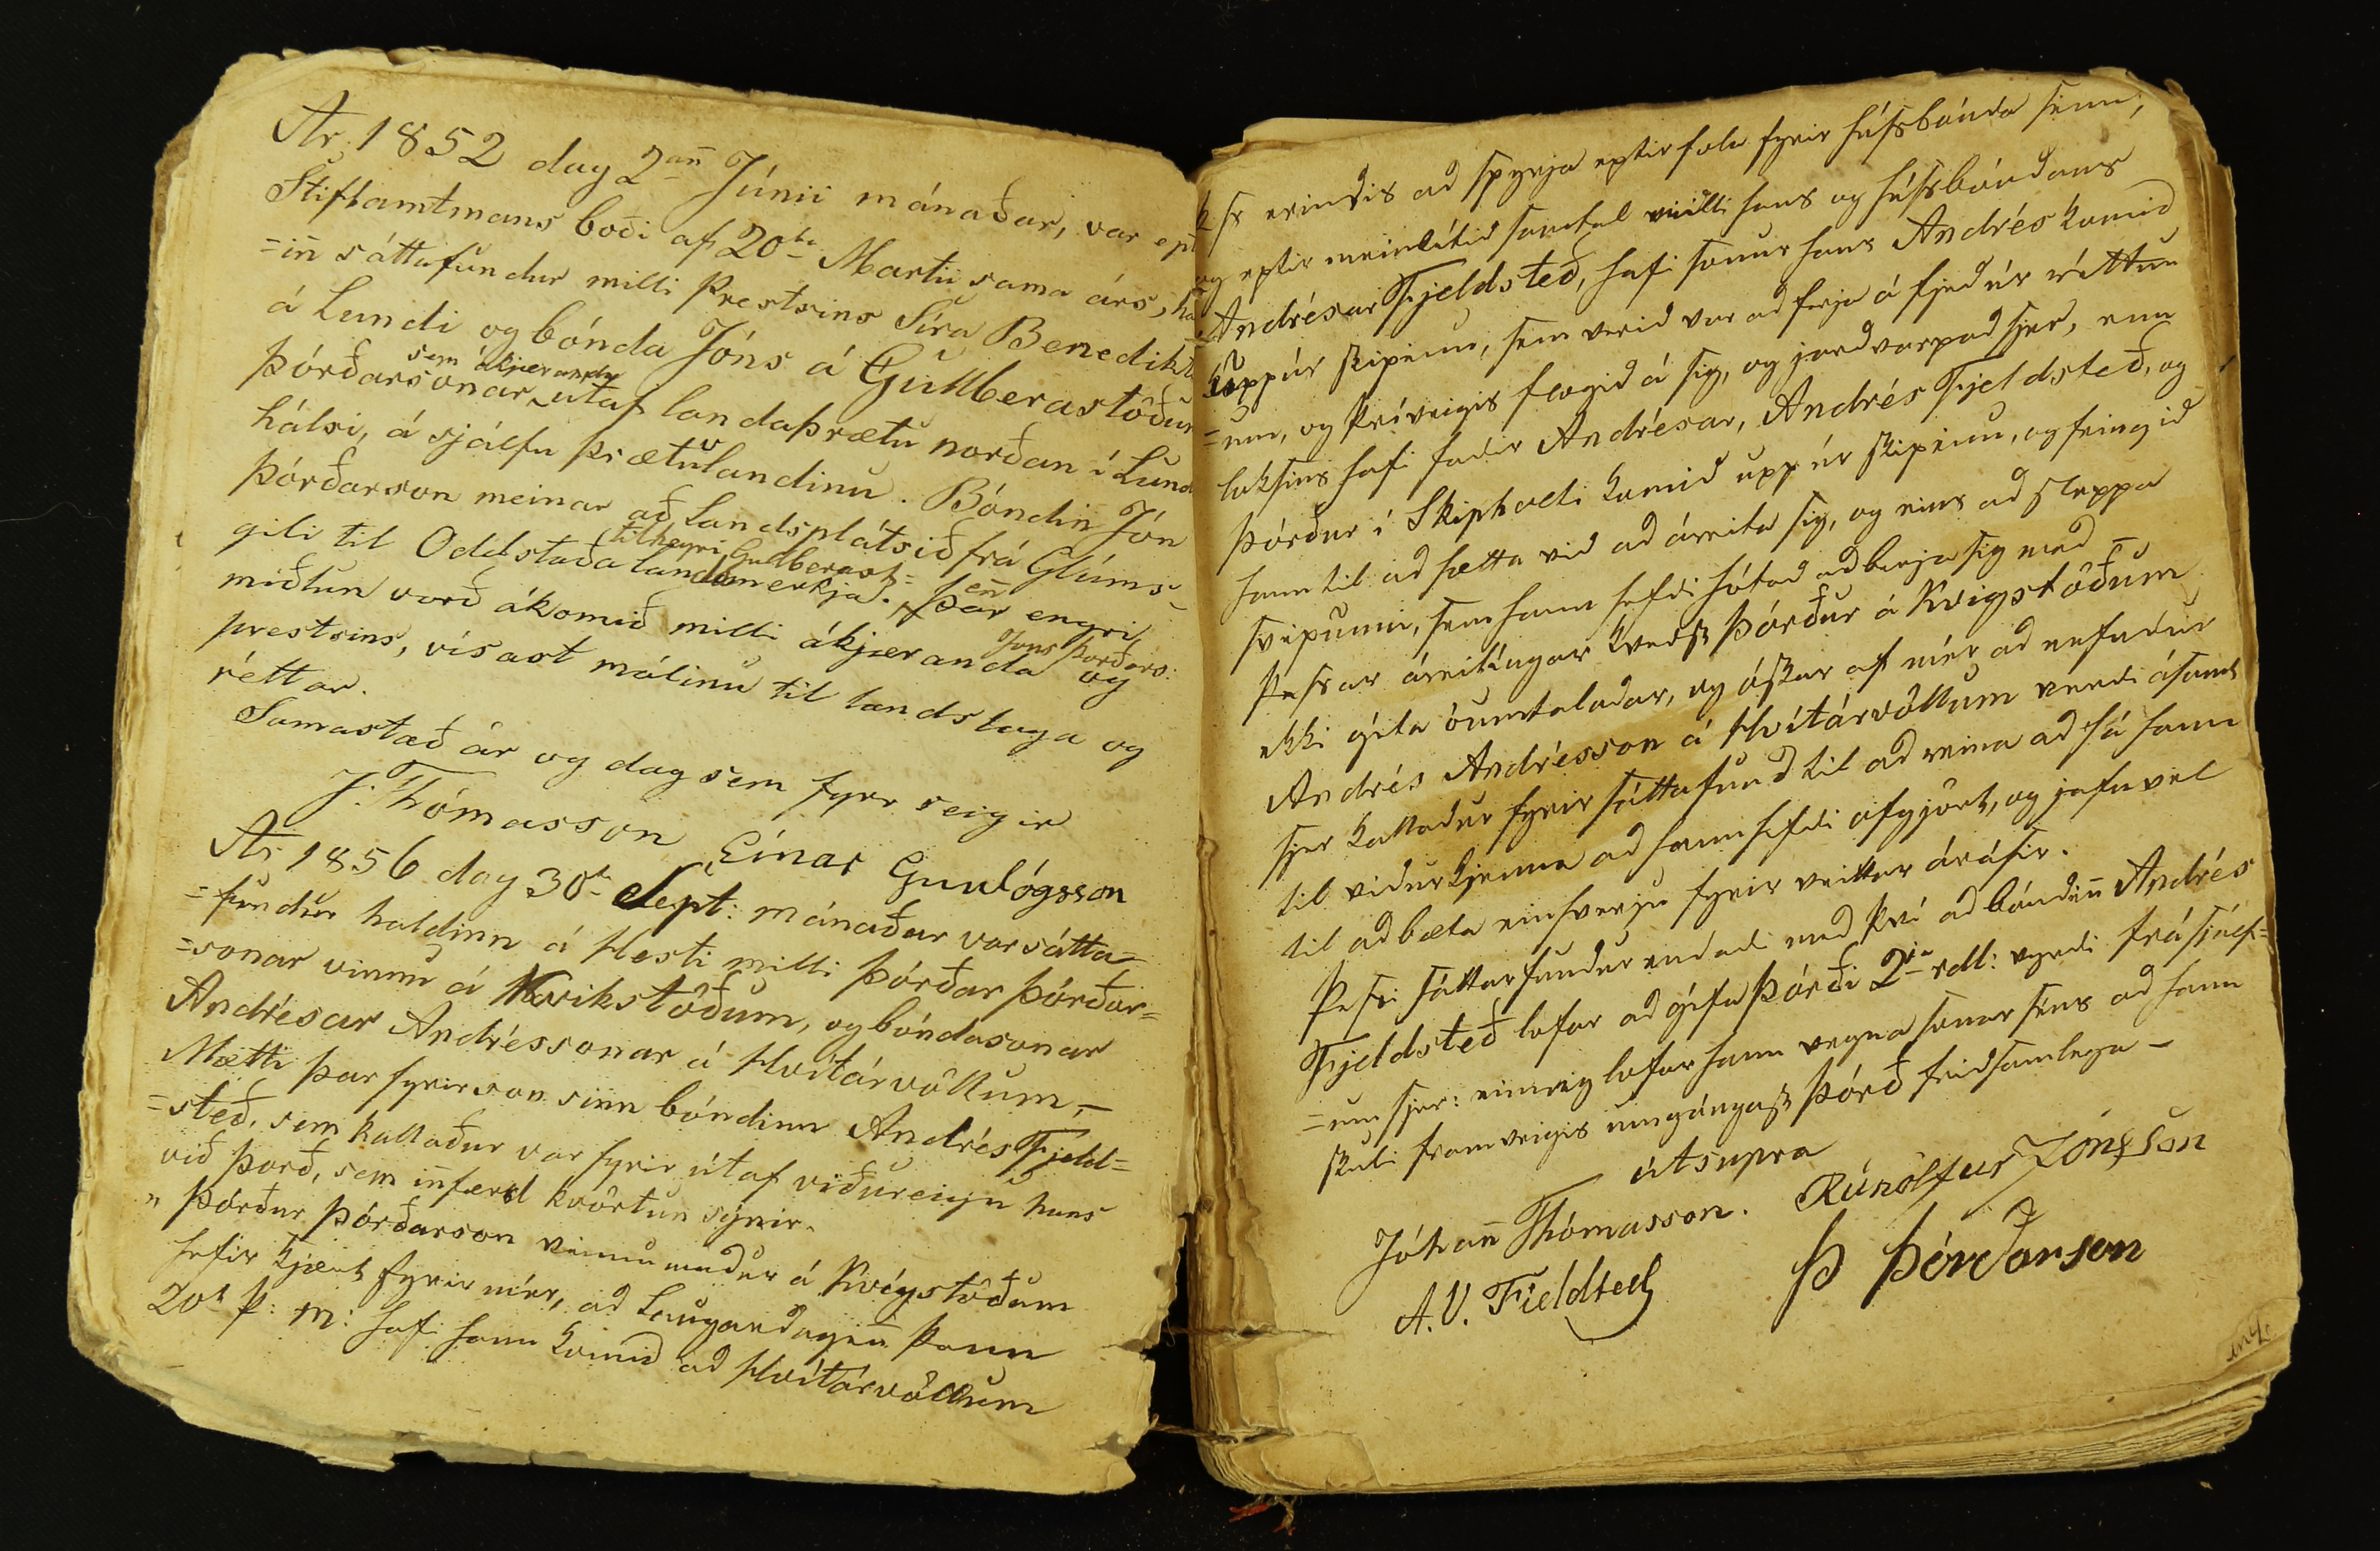 Ár 1852 dag 2an̄ Júnii mánaðar, var ept
Stiftamtmans boði af 20ta Martii sama árs, ha
=in̄ sáttafundur milli Prestsins Síra Benedikts
á Lundi og bónda Jóns á Gullberastöðum
sem ákjæranda
Þórðarsonar útaf landaþrætu norðan í Lund
hálsi, á sjálfu þrætulandinu. Bóndin̄ Jón
Þórðarson meinar að Landsplátsið frá Glúms=
tilheyri Gullberast=
gili til Oddstaða landamerkja. Þar en̄ engri
miðlun varð ákomið milli ákjæranda Jóns Þorðars: og
prestsins, vísast málinu til landslaga og
réttar.
Samastað ár og dag sem fyrr seigir
J. Thómasson Einar Gunlógsson
Ár 1856 dag 30ta Sept: mánaðar var sátta=
=fundur haldinn á Hesti milli Þórðar Þórðar=
=sonar vinnu á Kvikstöðum, og bóndasonar
Andrésar Andréssonar á Hvítárvöllum, –
Mætti þar fyrir son sinn bóndinn Andrés Fjeld=
=steð, sem kallaður var fyrir útaf viðureign hans
við Þorð, sem in̄færd kvörtun sýnir.
" Þórður Þórðarson vinnumaður á Kvígstöðum
hefir kjært fyrir mér, að Laugardagin̄ þann
20ta þ: m: hafi hann komið að Hvítárvöllum
þess erindis að spyrja eptir fola fyrir húsbónda sinn,
og eptir meinlítið samtal milli hans og húsbóndans
Andrésar Fjeldsteð, hafi sonur hans Andrés komið
uppúr skipinu, sem verið var að ferja á fjeð úr réttun
=um, og þrívegis flogið á sig, og jarðvarpað sjer, enn
loksins hafi faðir Andrésar, Andrés Fjeldsteð, og
Þórður í Skipholti komið upp úr skipinu, og feingið
hann til að hætta við að áreita sig, og eins að sleppa
svipunni, sem hann hefði hótað að berja sig með –
Þessar áreitingar kveðst Þórður á Kvigstöðum
ekki géta óumtalaðar, og óskar af mér að nefndur
Andrés Andrésson á Hvítárvöllum verði ásamt
sjer kallaður fyrir sáttafund til að reina að fá hann
til viðurkjenna að hann hefði ofgjört, og jafnvel
til að bæta einhverju fyrir veittar árásir.
Þessi sáttarfundur endaði með því að bóndin̄ Andrés
Fjeldsteð lofar að géfa Þórði 2ja rdl: virði frá sjálf=
=um sjer: einnig lofar hann vegna sonar síns að hann
skuli framvegis umgángast Þórð friðsamlega –
útsupra
Jóhan̄ Thómasson. Rúnólfur Jónsson
A. V. Fieldsted Þ Þórðarson